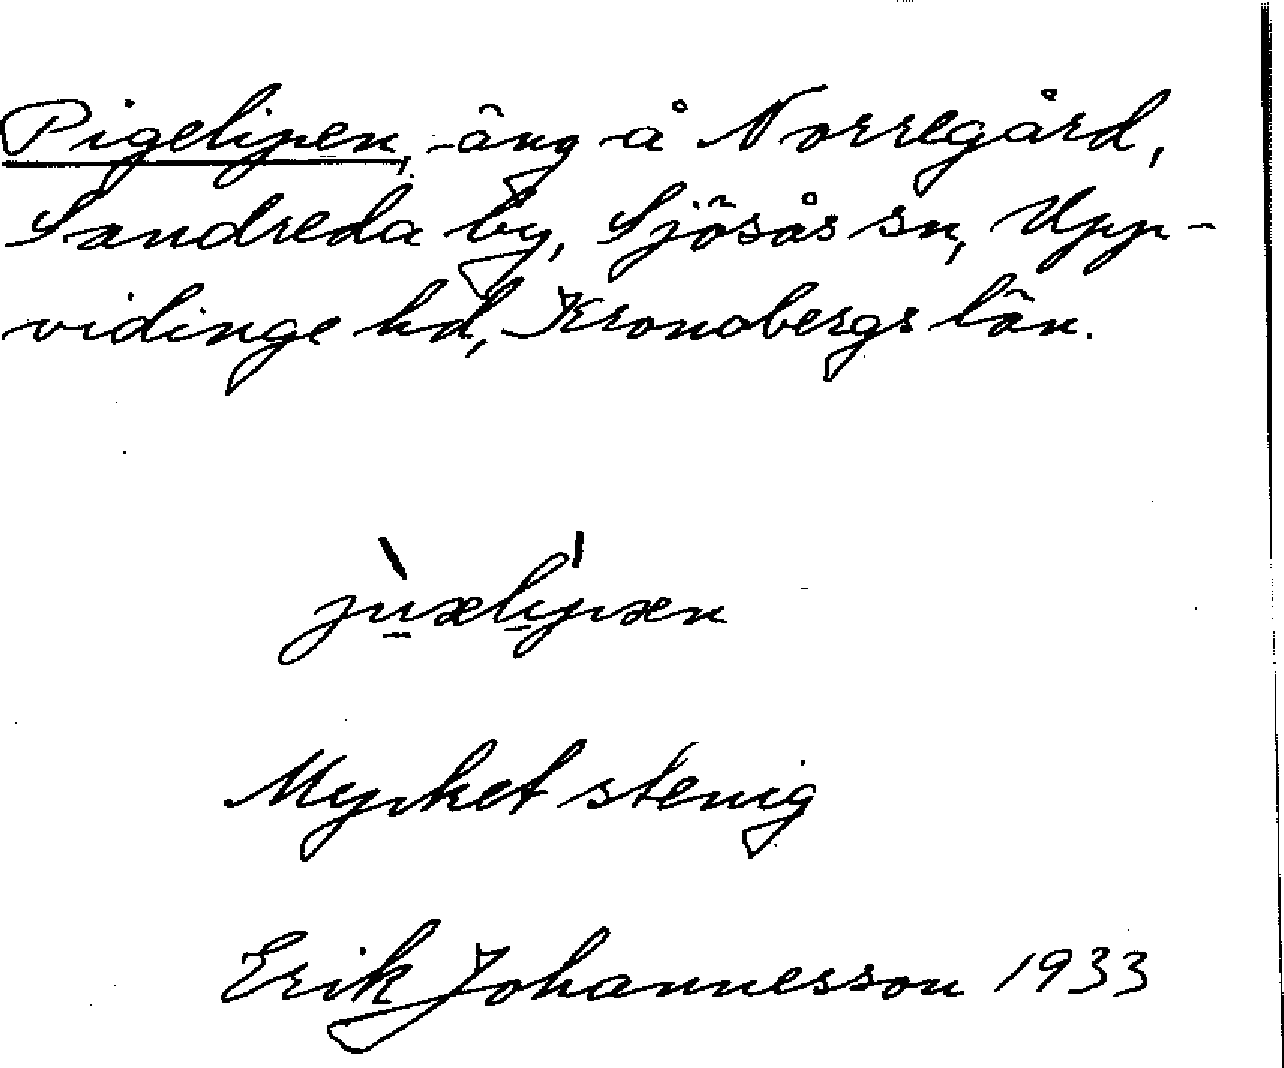 Pigelipen, äng å Norregård,
Sandreda by, Sjösås sn, Upp-
vidinge hd, Kronobergs län.
Mycket stenig
Erik Johannesson 1933